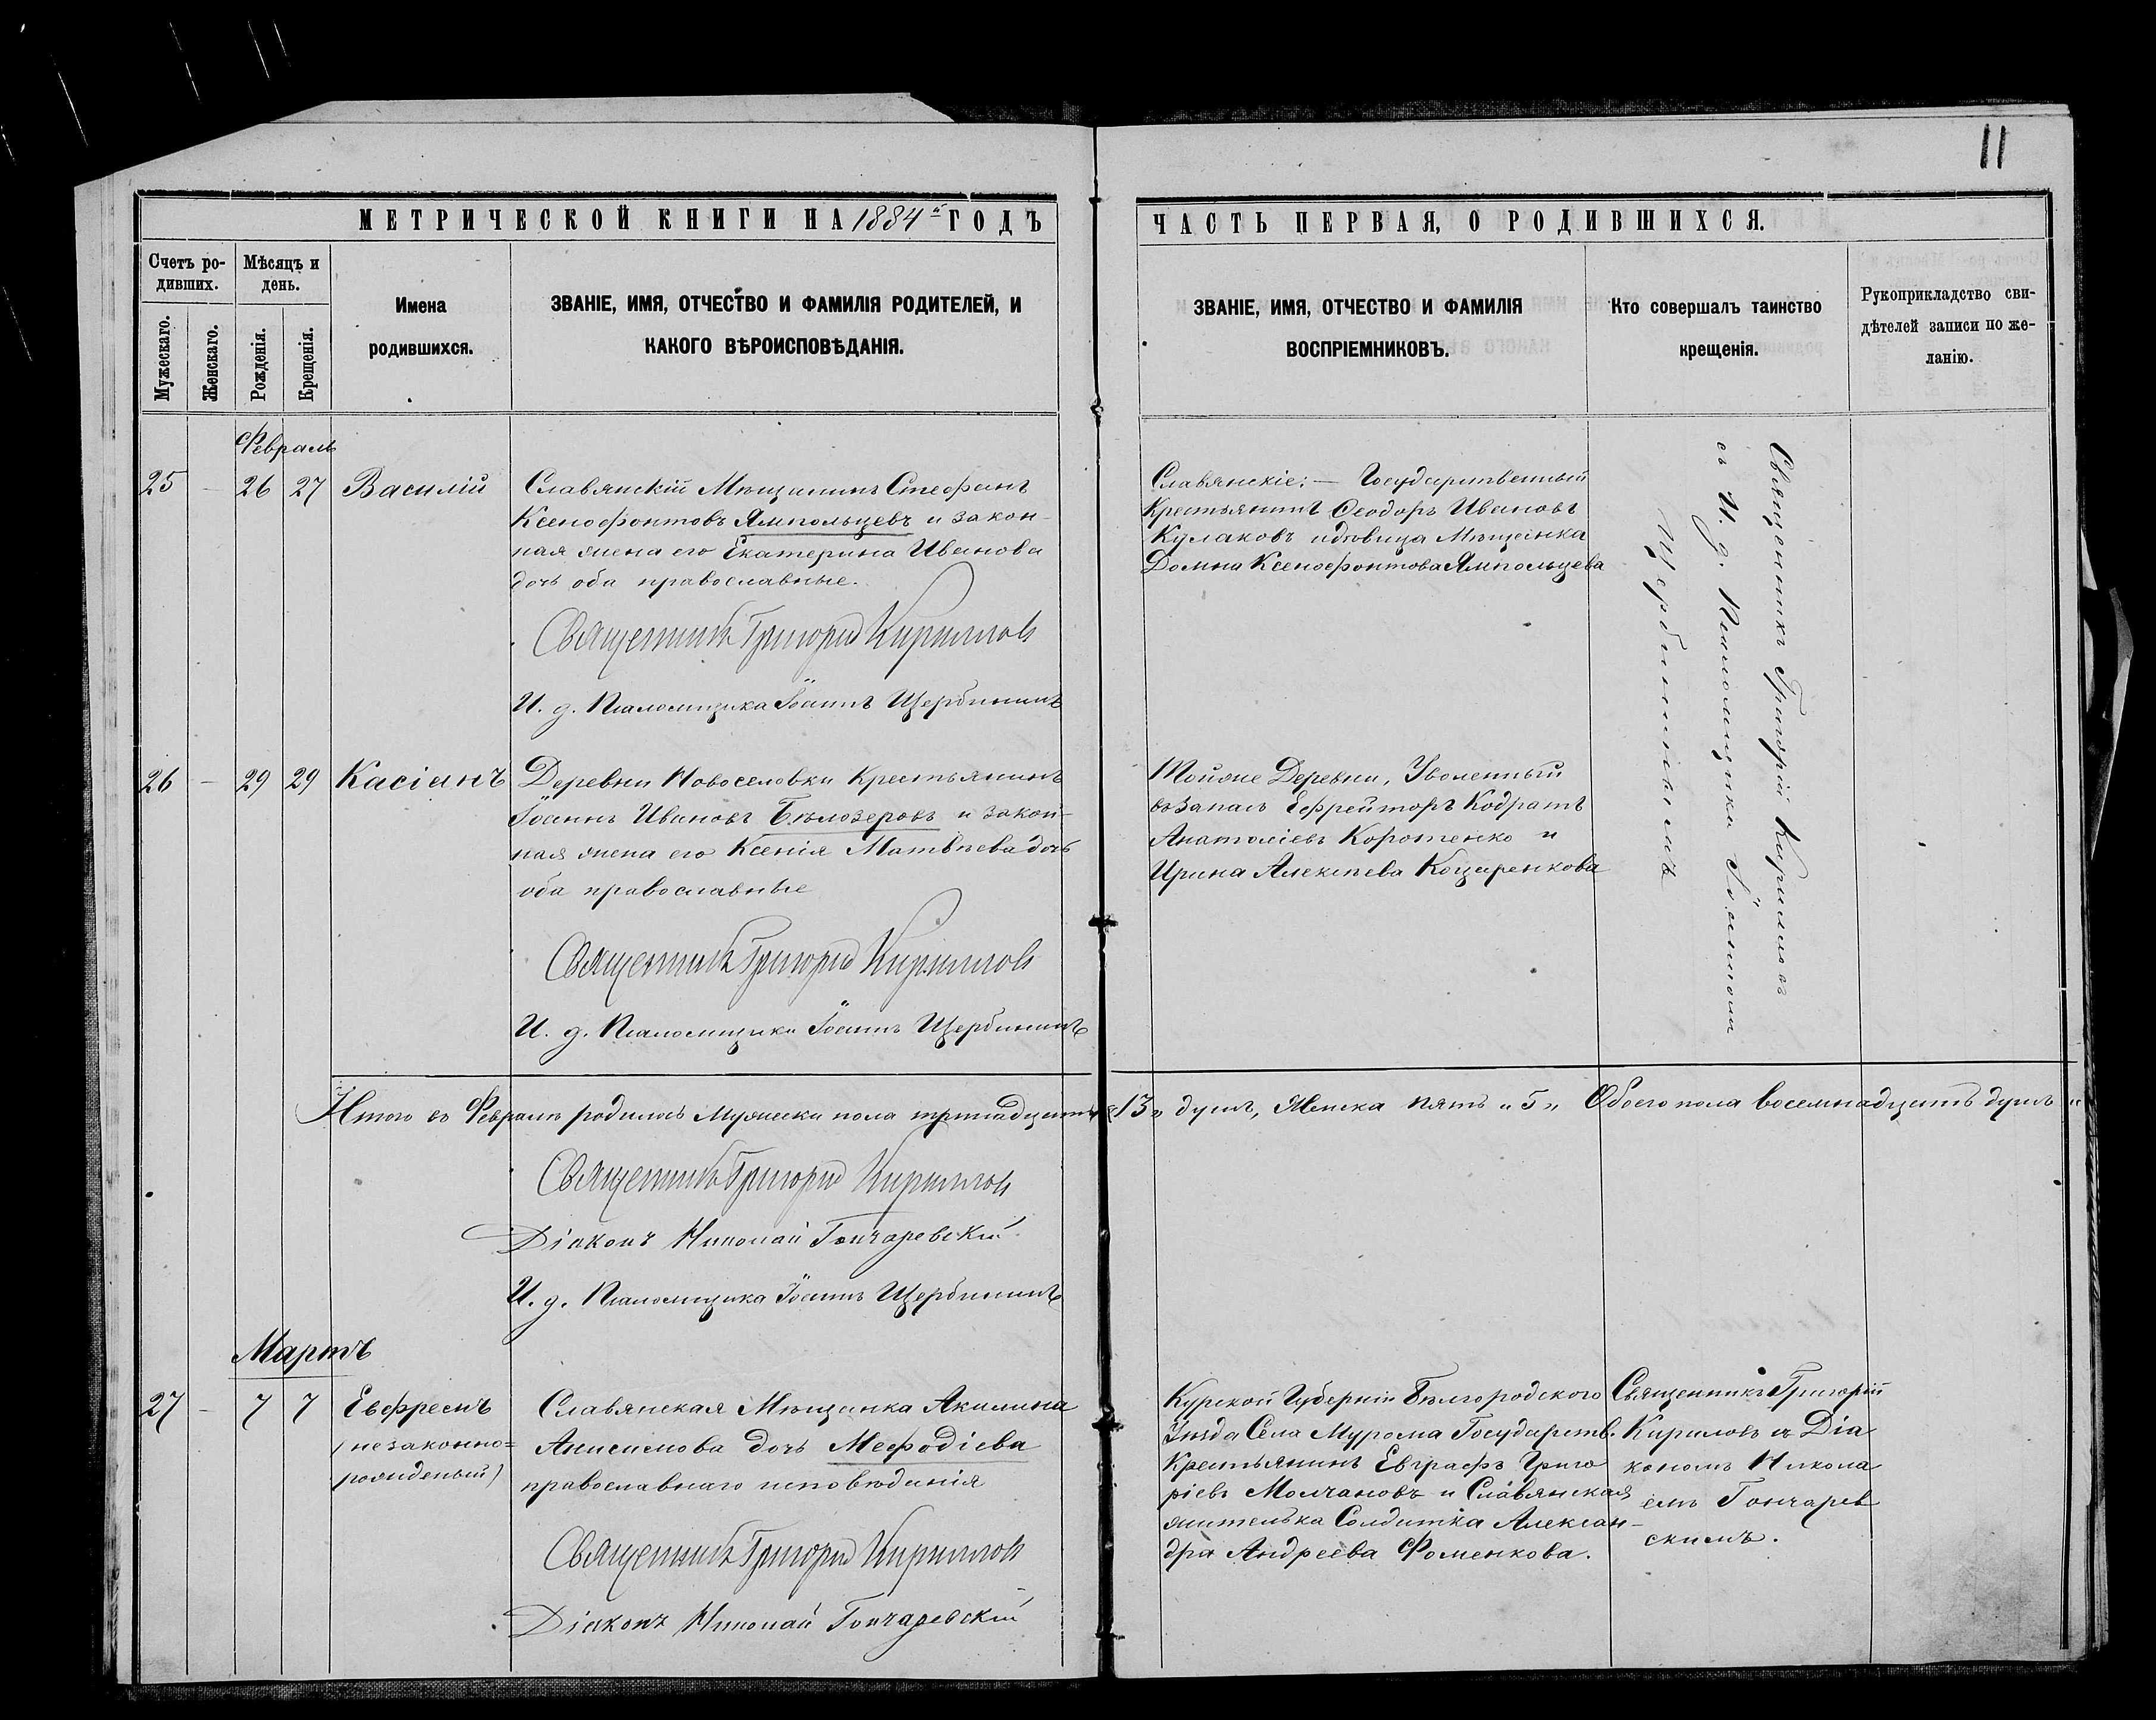 11
МЕТРИЧЕСКОЙ КНИГИ НА 1884й ГОДЪ
ЧАСТЬ ПЕРВАЯ, О РОДИВШИХСЯ.
Счетъ ро-
дивших.
Мѣсяцъ и
день.
Мужескаго.
Женскаго.
Рожденія.
Крещенія.
Имена
родившихся.
ЗВАНІЕ, ИМЯ, ОТЧЕСТВО И ФАМИЛІЯ РОДИТЕЛЕЙ, И
КАКОГО ВѢРОИСПОВѢДАНІЯ.
ЗВАНІЕ, ИМЯ, ОТЧЕСТВО И ФАМИЛІЯ
ВОСПРІЕМНИКОВЪ.
Кто совершалъ таинство
крещенія.
Рукоприкладство сви-
дѣтелей записи по же-
ланію.
Февраль
25 – 26 27 Василій
Славянскій Мѣщанинъ Стефанъ
Ксенофонтовъ Ямпольцевъ и закон-
ная жена его Екатерина Иванова
дочь оба православные.
Священникъ Григорій Кириллов
И. д. Псаломщика Іоаннъ Щербининъ
Славянскіе: — Государственный
Крестьянинъ Ѳеодоръ Ивановъ
Кулаковъ и вдовица Мѣщанка
Домна Ксенофонтова Ямпольцева
Священникъ Григорій Кириловъ
съ И. д. Псаломщика Іоанномъ
Щербининымъ
26 – 29 29 Касіанъ
Деревни Новоселовки Крестьянинъ
Іоаннъ Ивановъ Бѣлозеровъ и закон-
ная жена его Ксенія Матвѣева дочь
оба православные
Священникъ Григорій Кириллов
И. д. Псаломщика Іоаннъ Щербининъ
Тойже Деревни, Уволенный
въ запасъ Ефрейторъ Кодратъ
Анатоліевъ Коротенко и
Ирина Алексѣева Коцаренкова
Итого въ Февралѣ родилось Мужеска пола тринадцать „13„ душъ, Женска пять „5„ Обоего пола восемнадцать душъ „
Священникъ Григорій Кириллов
Діаконъ Николай Гончаревскій
И. д. Псаломщика Іоаннъ Щербининъ
Мартъ
27 – 7 7 Ефремъ
(незаконно=
рожденый)
Славянская Мѣщанка Акилина
Анисимова дочь Меѳодіева
православнаго исповѣданія
Священникъ Григорій Кириллов
Діаконъ Николай Гончаревскій
Курской Губерніи Бѣлгородского
Уѣзда Села Мурома Государств.
Крестьянинъ Евграфъ Григо
ріевъ Молчановъ и Славянская
жителька Солдатка Алексан-
дра Андреева Фоменкова.
Священникъ Григорій
Кириловъ съ Діа
кономъ Никола
емъ Гончарев
скимъ.